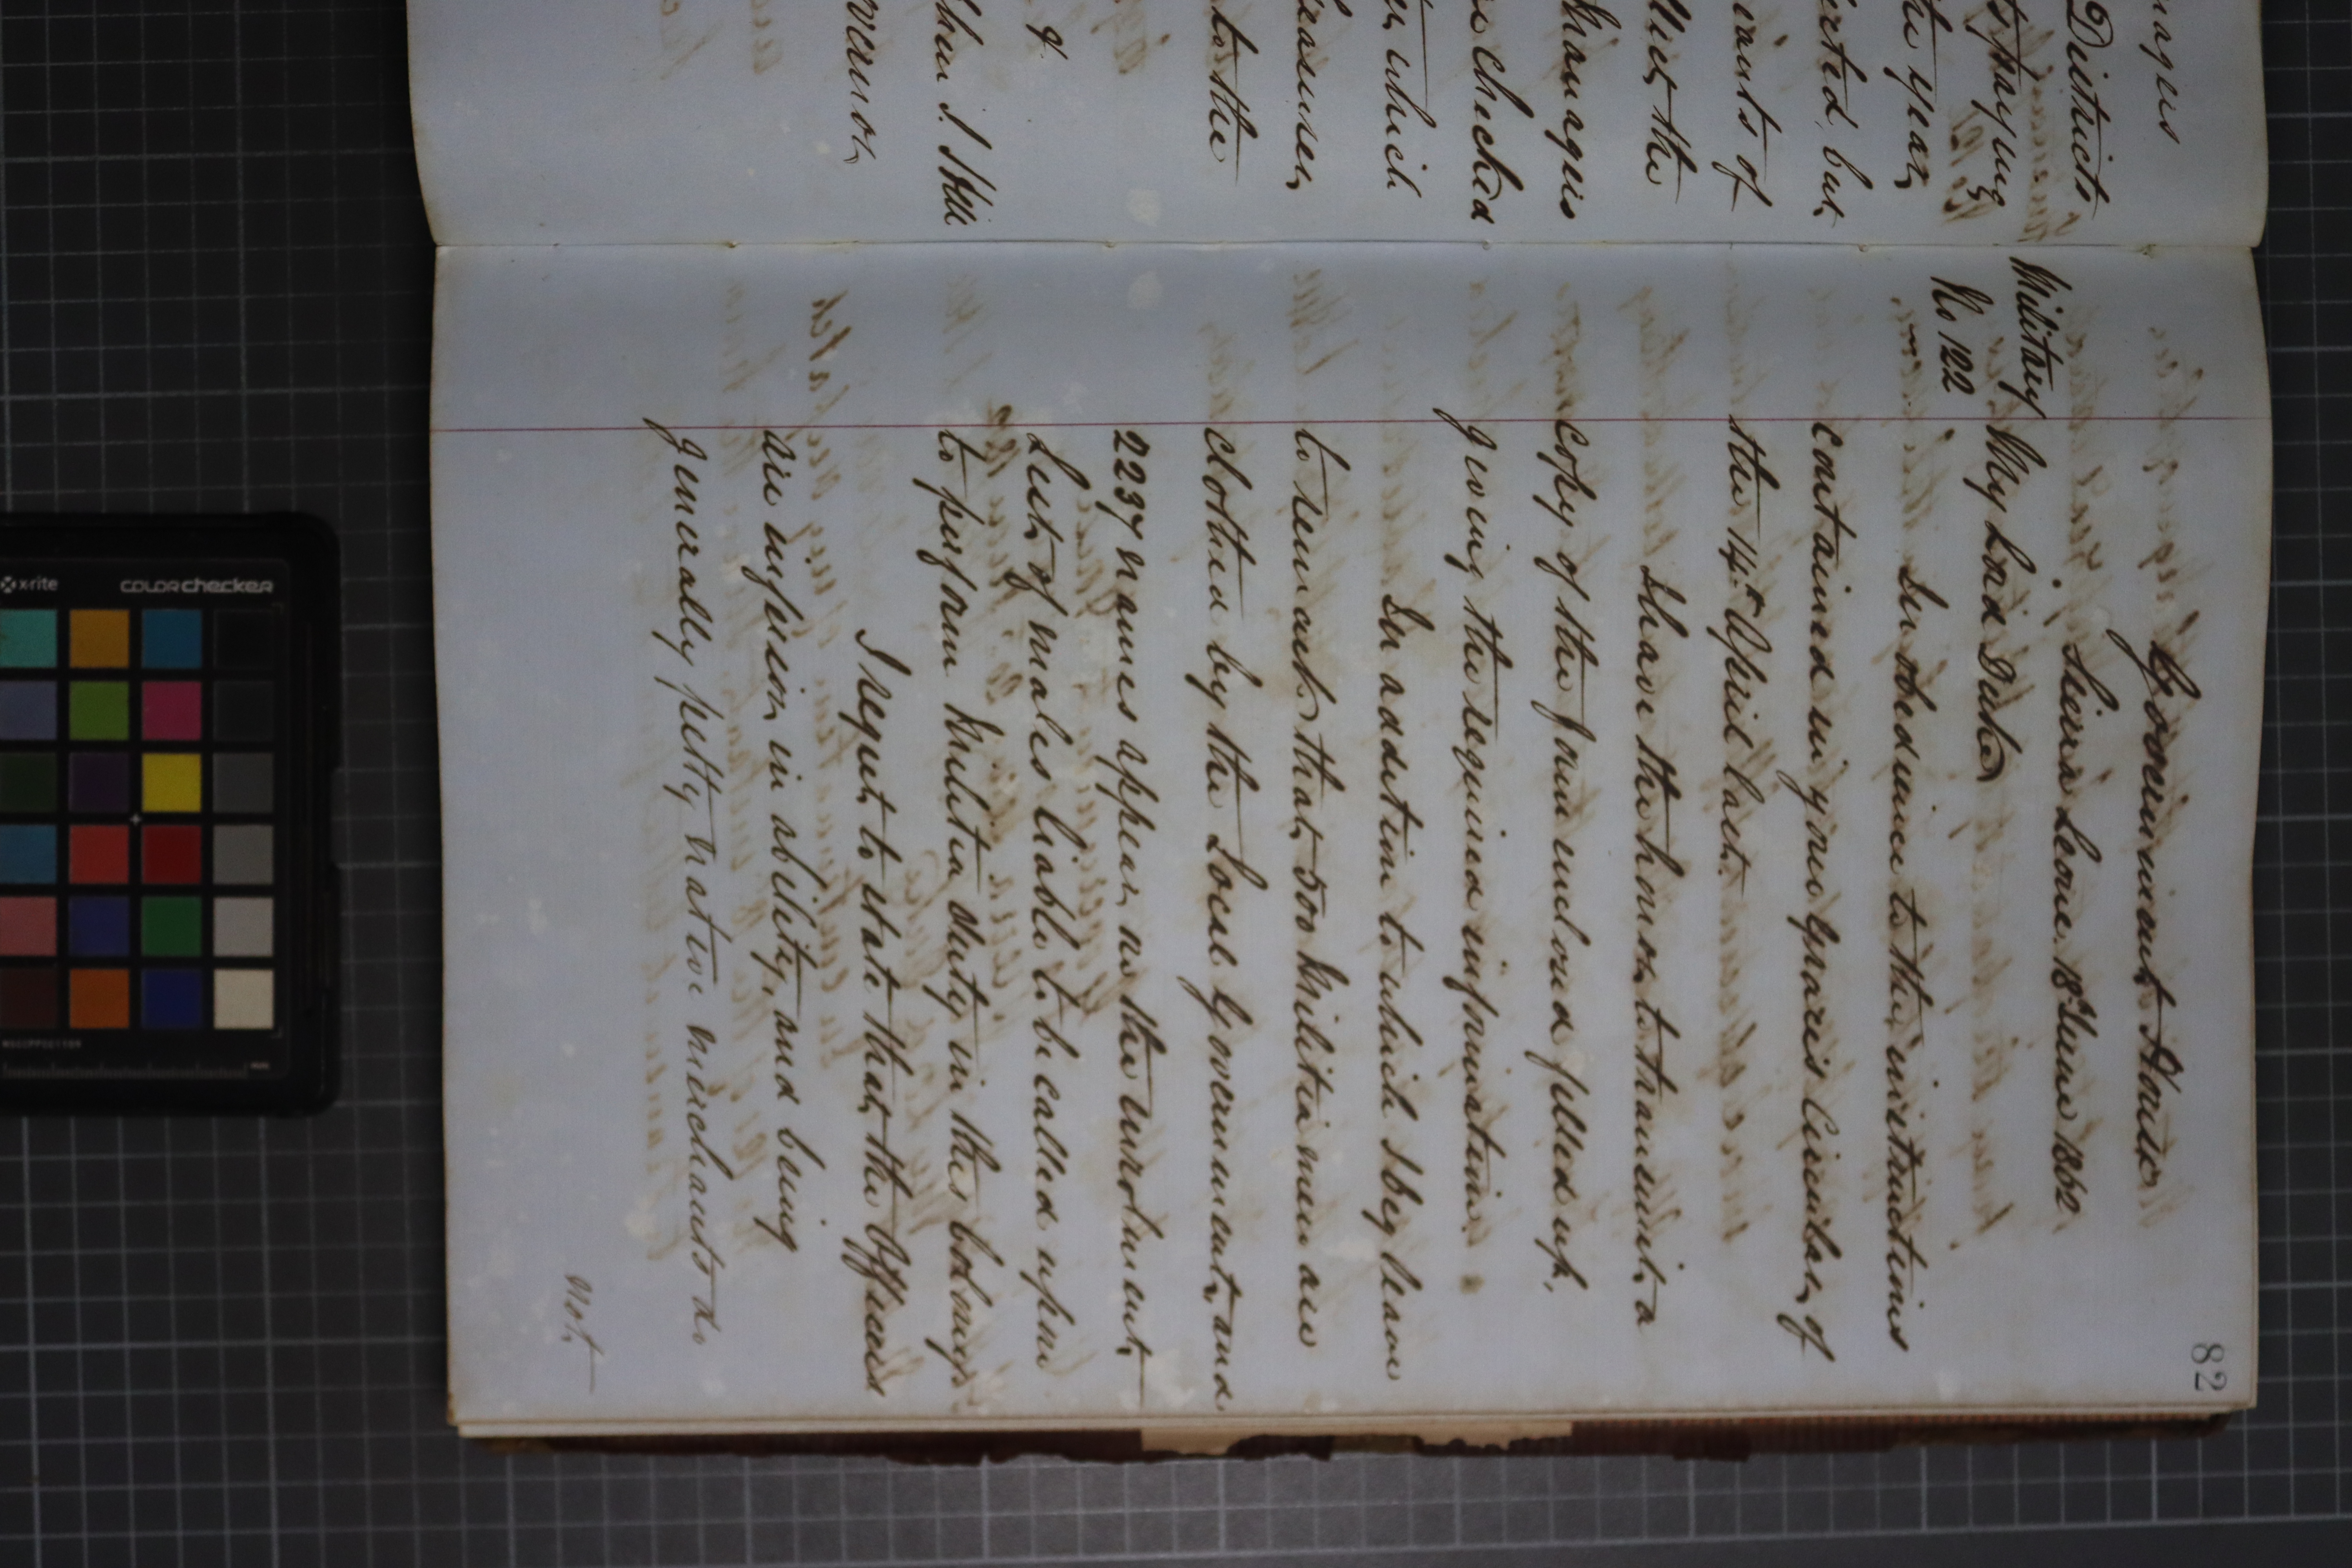 nages
Districts
the year
but
of
the
Managers
checked
which
Treasurer
to the
&
Sthen J Hill
Governor
82
Government House
Sierra Leone 18th June 1862
Military
No 122
My Lord Duke
In obedience to the instructions
contained in your Graces Circular, of
the 14th April last.
I have the honor to transmit a
copy of the form enclosed filled up,
giving the required information.
In addition to which I beg leave
to remark that 500 Militia men are
clothed by the Local Government, and
2237 names appear on the enrolment
List of males liable to be called upon
to perform Militia duty in this Colony.
I regret to state that the Officers
are inferior in ability, and being
generally petty native merchants do
not
x-rite
colorchecker